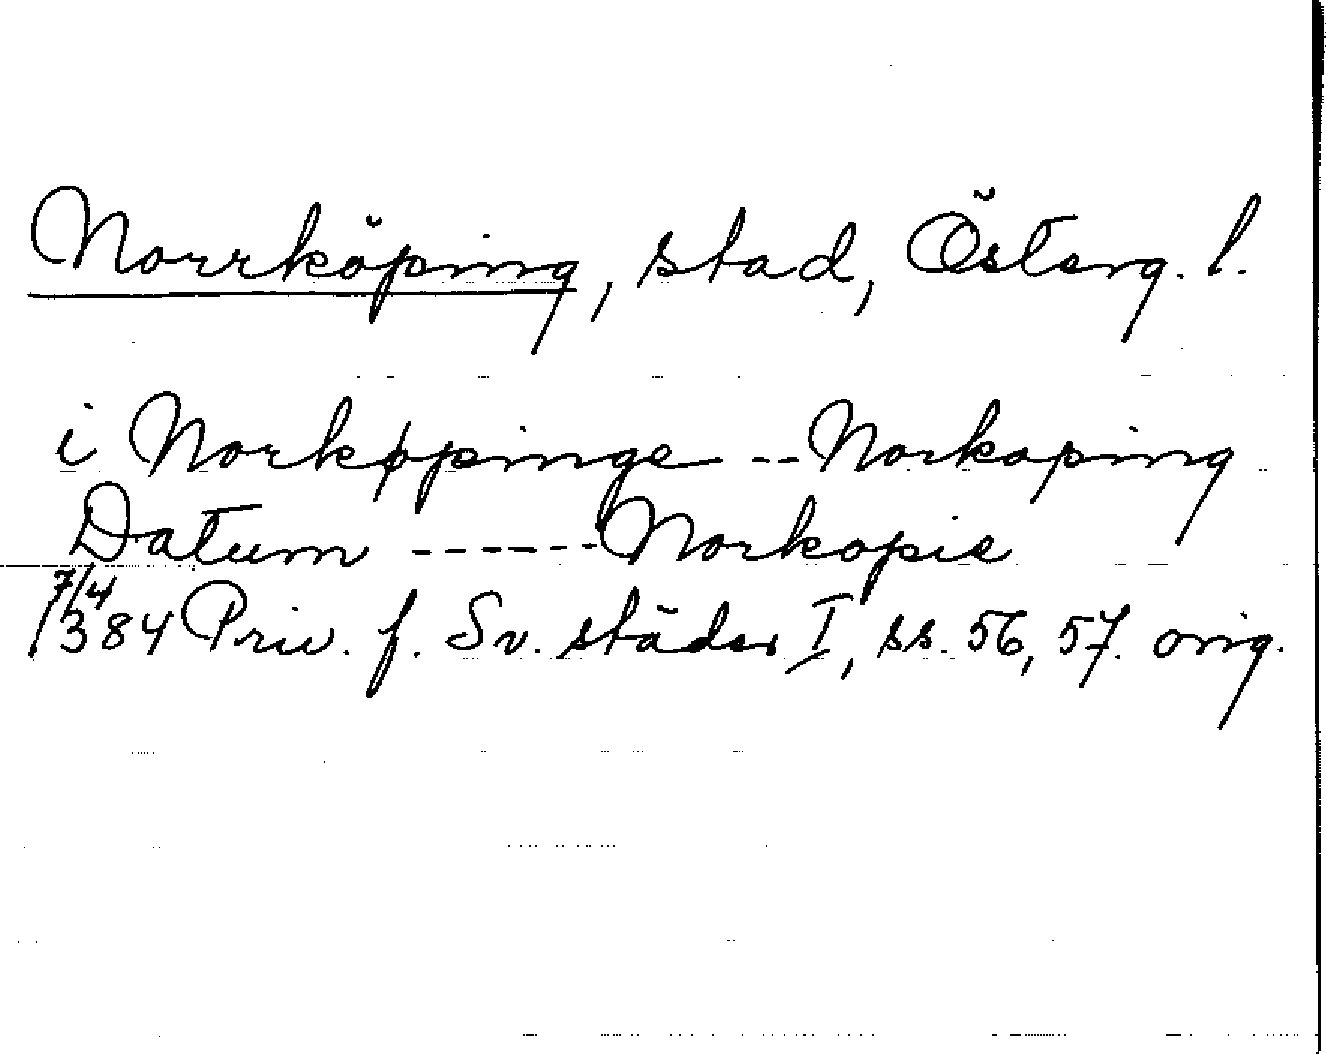 Norrköping, stad, Österg. l.
i Norkøpinge -- Norkoping
Datum ------ Norkopie
7/4
1384 Priv. f. Sv. städer I, ss. 56, 57. orig.